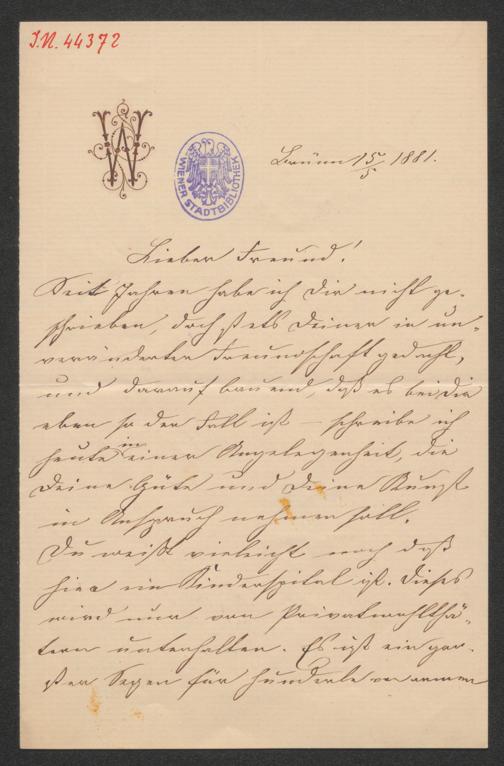 I.N. 44372
W
WIENER STADTBIBLIOTHEK
Brünn 15/5 1881.
Lieber Freund!
Seit Jahren habe ich Dir nicht ge-
schrieben, doch stets Deiner in un-
veränderter Freundschaft gedacht,
und darauf bauend, daß es bei Dir
eben so der Fall ist – schreibe ich
heute in einer Angelegenheit, die
Deine Güte und Deine Kunst
in Anspruch nehmen soll.
Du weißt vieleicht noch daß
hier ein Kinderspital ist. Dieses
wird nur von Privatwohlthä-
tern unterhalten. Es ist ein
Segen für hunderte von armen